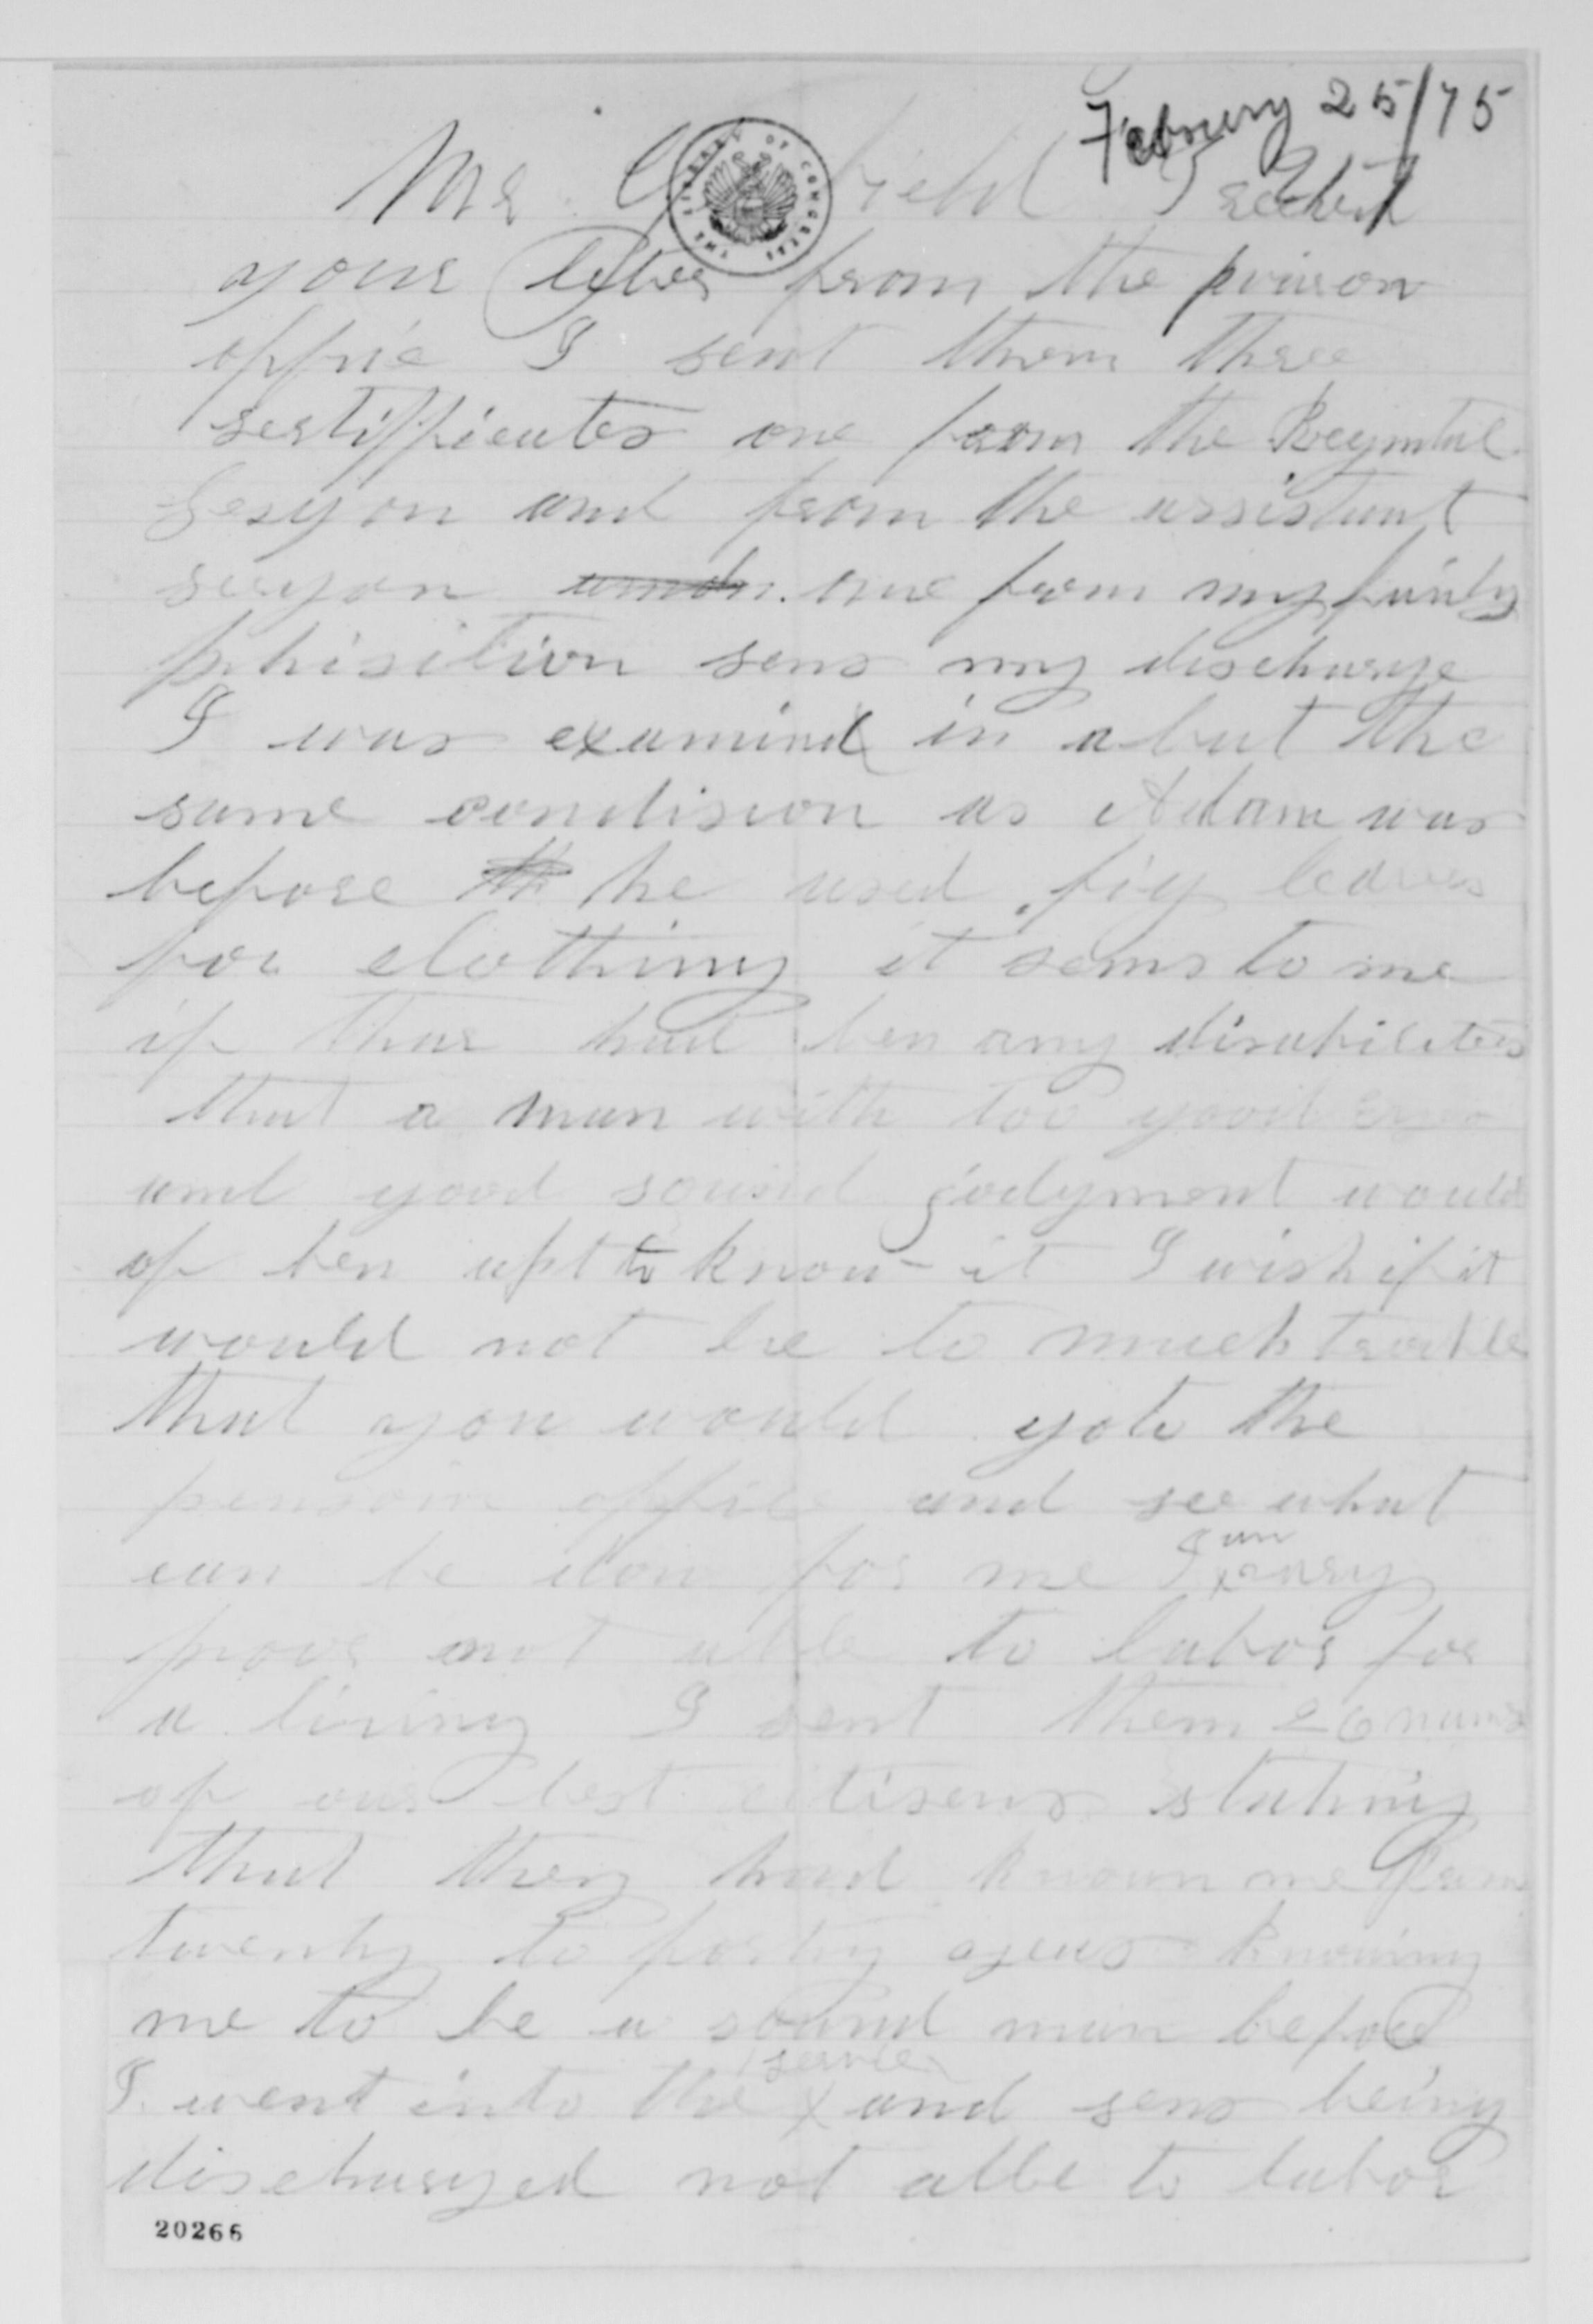 Februery 25/75
Mr. G field I recheved
your letter from the
offic I sent them three
sertifficates one from the Regmtal
Sergon and from the assistant
sergon one from my
phisition sens my discharge
I was examind in abut the
same condision as Adam was
before he used fig leaves
for clothing it sems to me
if thar had ben any disabilitess
that a man with too good
and good sound jodgment would
of ben apt to know it I wish if it
would not be to much trouble
that you would goto the
pension offic and see what
can be don for me I am very
poor not able to labor for
a living I sent them 26 names
of our best citisens stating
that they had known me from
twenty to forty years knowing
me to be a sound man before
I went into the service and sens being
discharged not able to labor
20266
THE LIBRARY OF CONGRESS